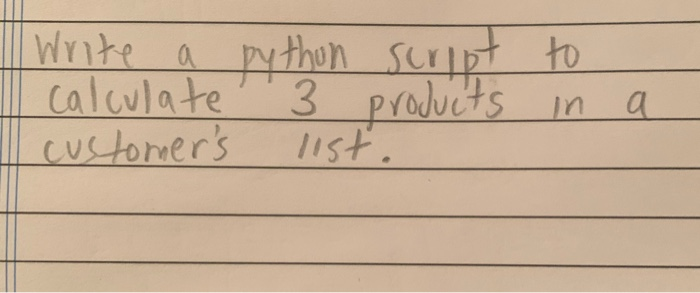 Write a python script to
calculate 3 products in a
customer's list.